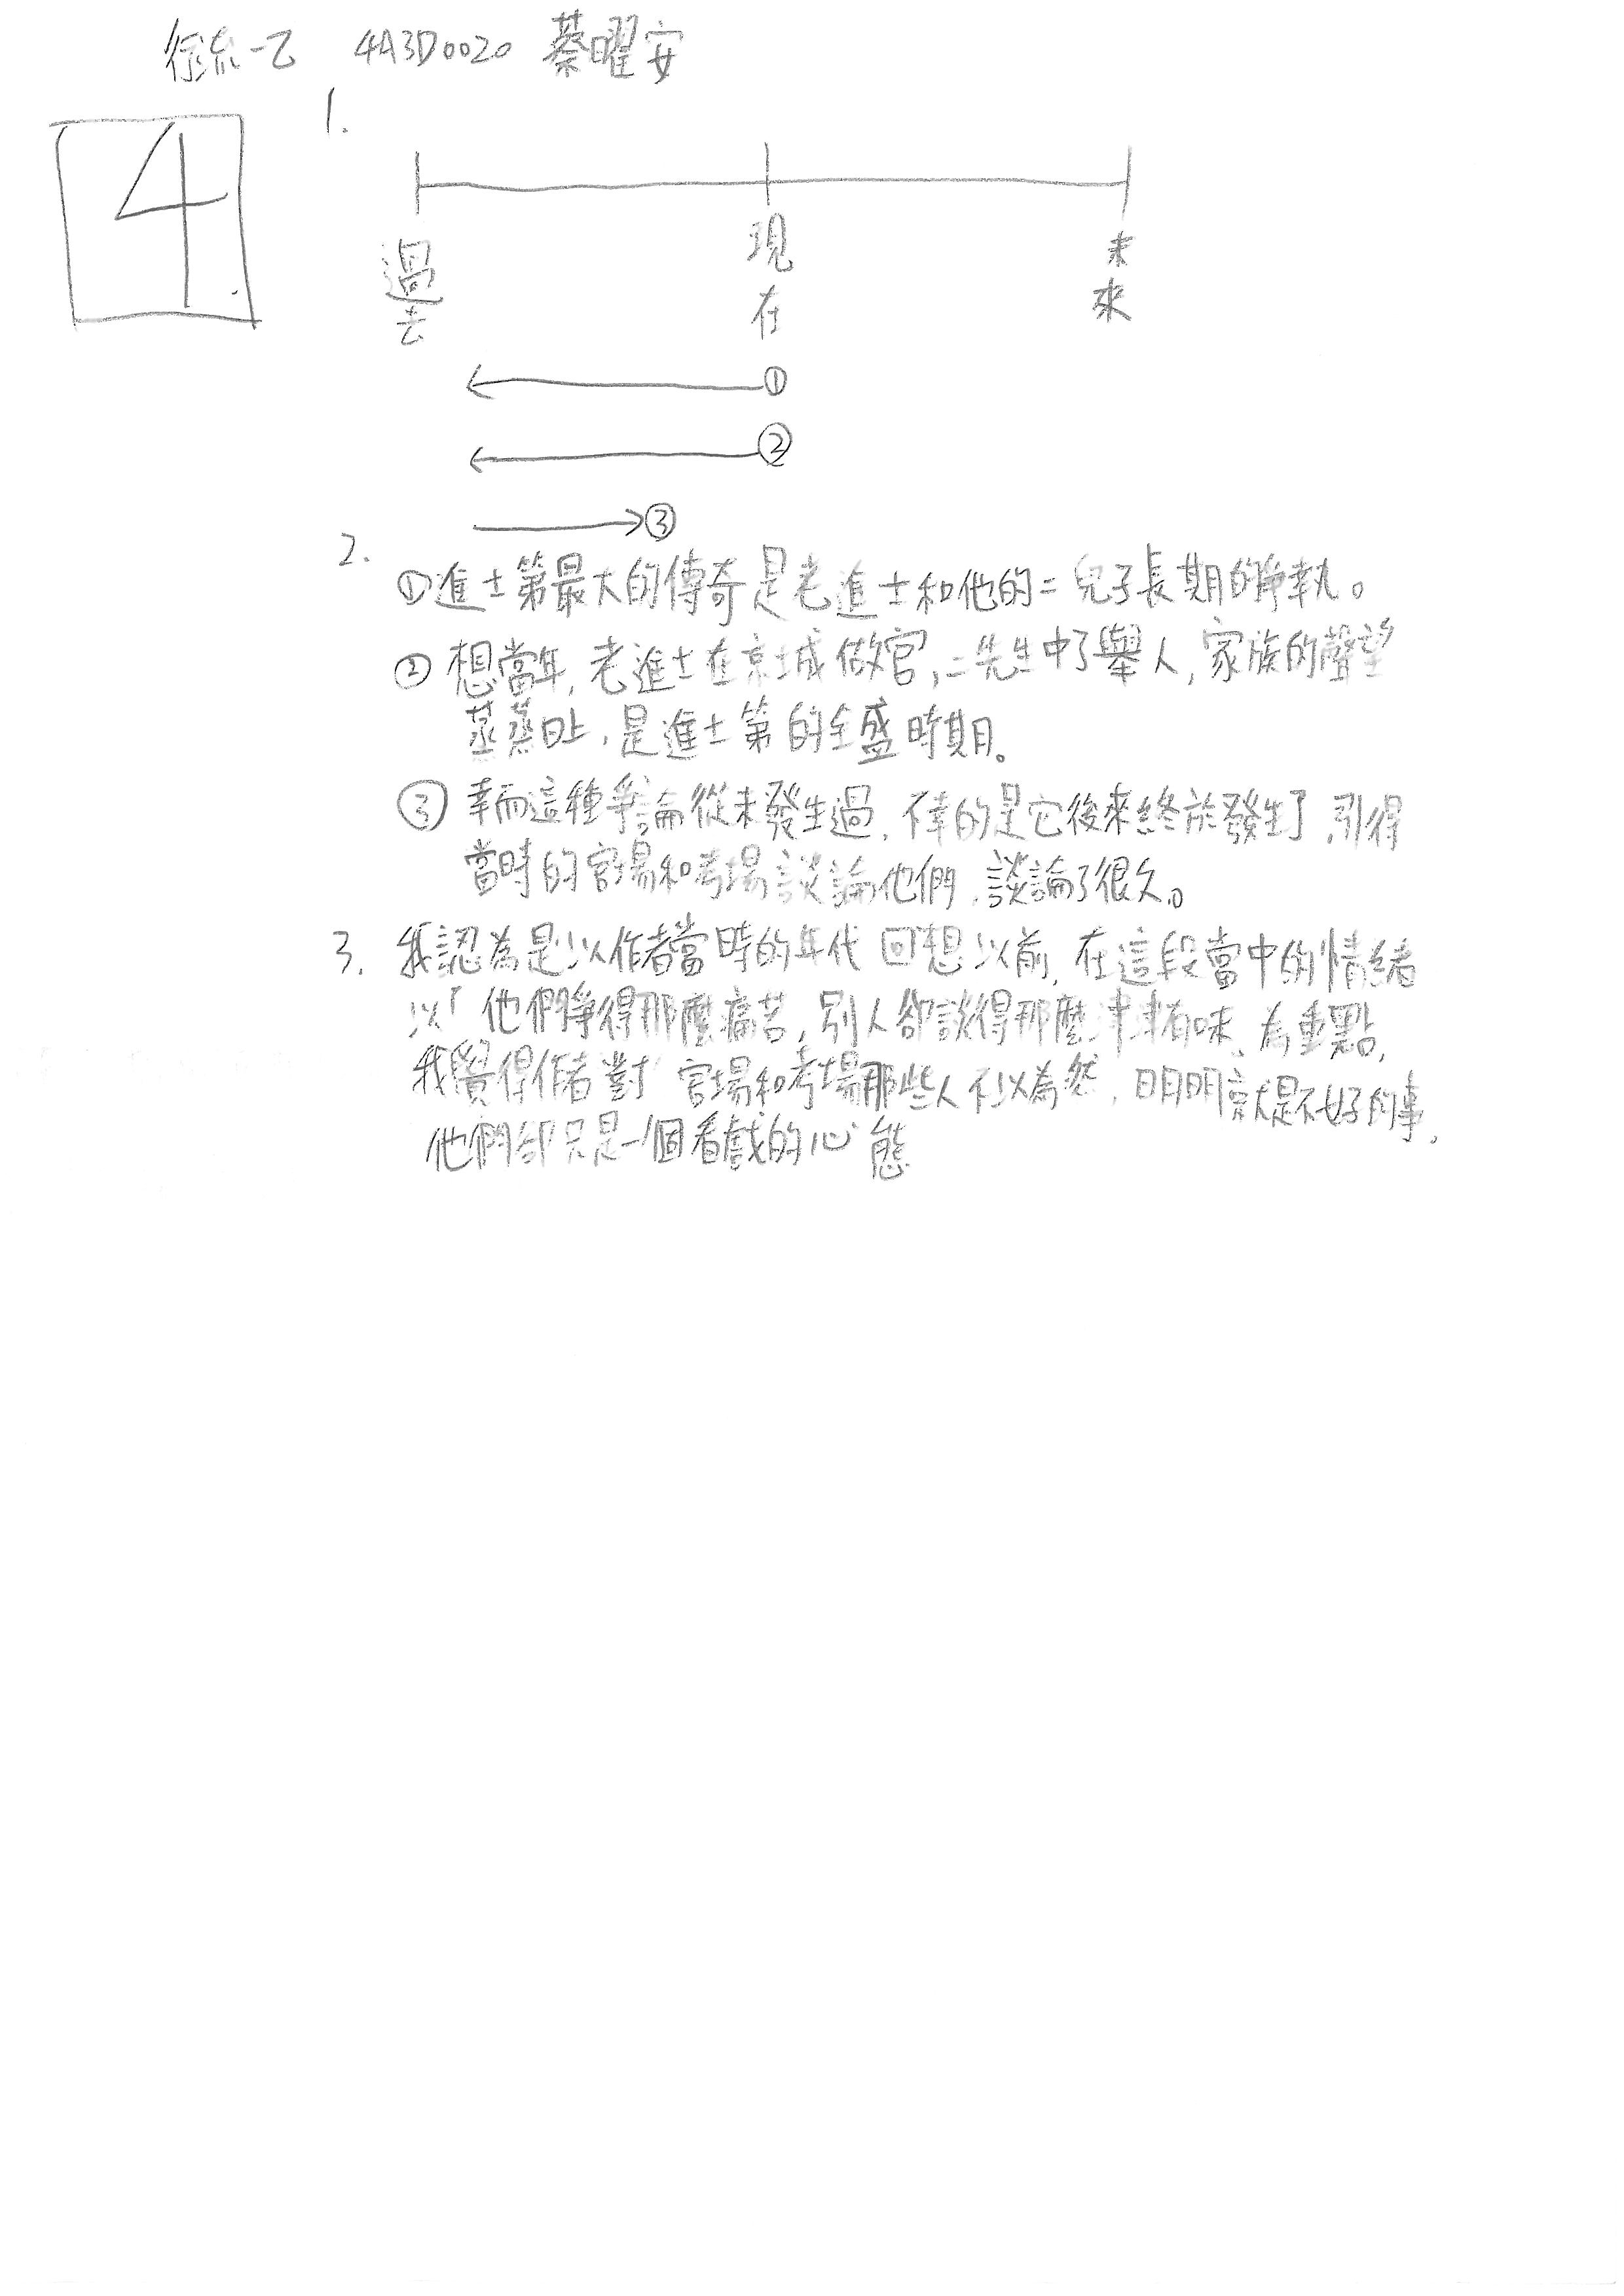 流一乙 4A3D0020 蔡曜安
4
1.
過去 現在 未來
①
②
③
2.
①進士第最大的傳奇是老進士和他的二兒子長期的爭執。
② 想當年,老進士在京城做官,二先生中了舉人,家族的聲望
蒸蒸日上,是進士第的全盛時期。
③ 幸而這種爭論從未發生過,不幸的是它後來終於發生了,引得
當時的官場和考場談論他們,談論了很久。
3. 我認為是以作者當時的年代回想以前,在這段當中的情緒
以「他們爭得那麼痛苦,別人卻談得那麼津津有味」為重點,
我覺得作者對官場和考場那些人不以為然,明明就是不好的事,
他們卻只是一個看戲的心態